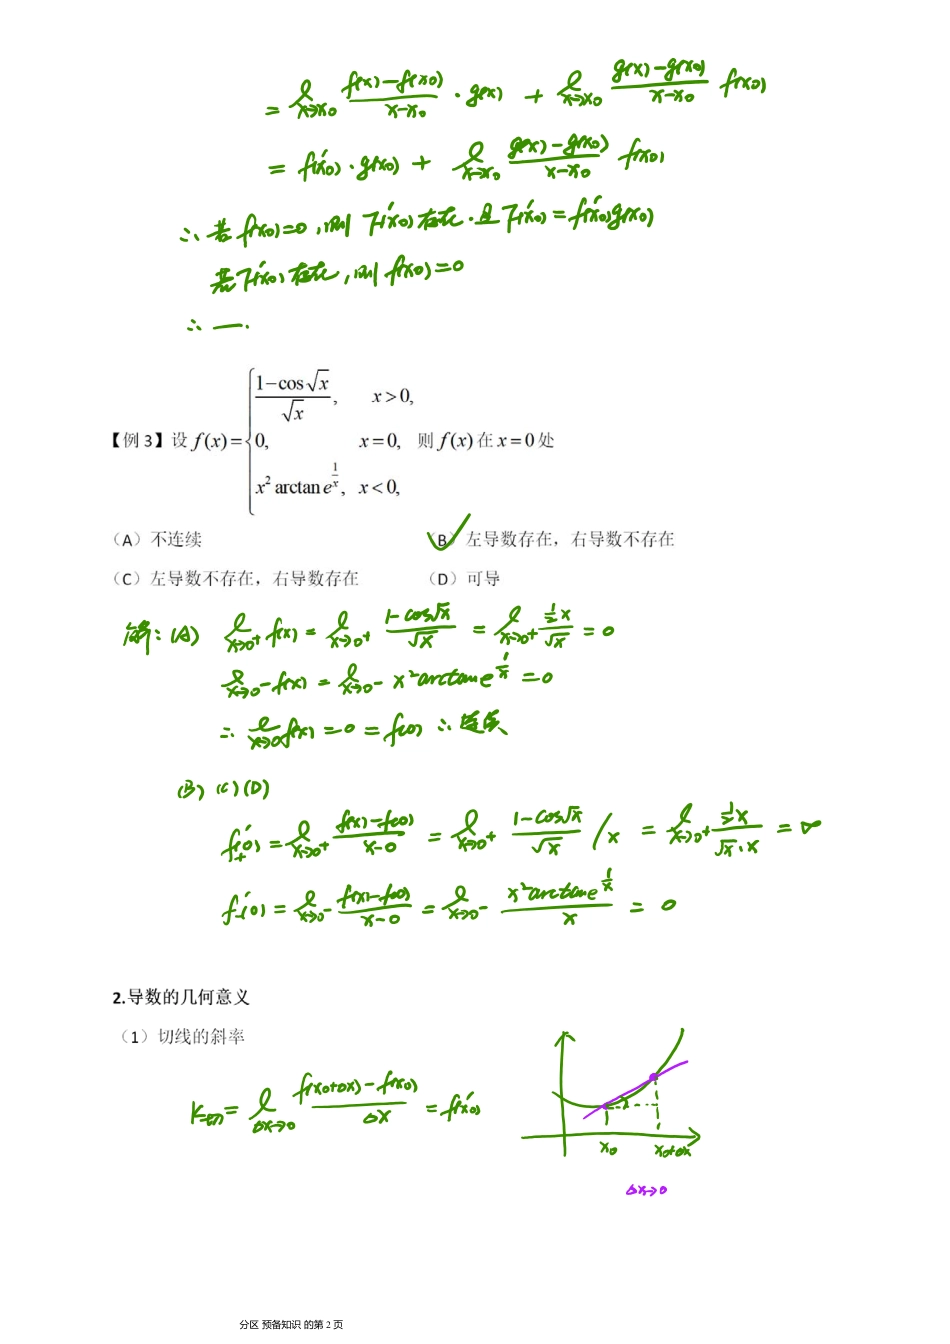 = lim x→x₀ (f(x)-f(x₀))/(x-x₀) · g(x) + lim x→x₀ (g(x)-g(x₀))/(x-x₀) f(x₀)
= f'(x₀)·g(x₀) + lim x→x₀ (g(x)-g(x₀))/(x-x₀) f(x₀)
∴ 若 f(x₀)=0，则 F'(x₀) 存在．且 F'(x₀)=f'(x₀)g(x₀)
若 F'(x₀) 存在，则 f(x₀)=0
∴ 一．
【例 3】设 f(x)= { (1-cos√x)/√x, x>0, 0, x=0, x² arctan e^(1/x), x<0, 则 f(x) 在 x=0 处
（A）不连续 （B）左导数存在，右导数不存在
（C）左导数不存在，右导数存在 （D）可导
解：(A) lim x→0⁺ f(x) = lim x→0⁺ (1-cos√x)/√x = lim x→0⁺ (½x)/√x = 0
lim x→0⁻ f(x) = lim x→0⁻ x² arctan e^(1/x) = 0
∴ lim x→0 f(x) = 0 = f(0) ∴ 连续
(B) (C) (D)
f₊'(0) = lim x→0⁺ (f(x)-f(0))/(x-0) = lim x→0⁺ (1-cos√x)/√x / x = lim x→0⁺ (½x)/(√x·x) = ∞
f₋'(0) = lim x→0⁻ (f(x)-f(0))/(x-0) = lim x→0⁻ (x² arctan e^(1/x))/x = 0
2.导数的几何意义
（1）切线的斜率
K切 = lim Δx→0 (f(x₀+Δx)-f(x₀))/Δx = f'(x₀)
x₀ x₀+Δx
Δx→0
分区 预备知识 的第 2 页